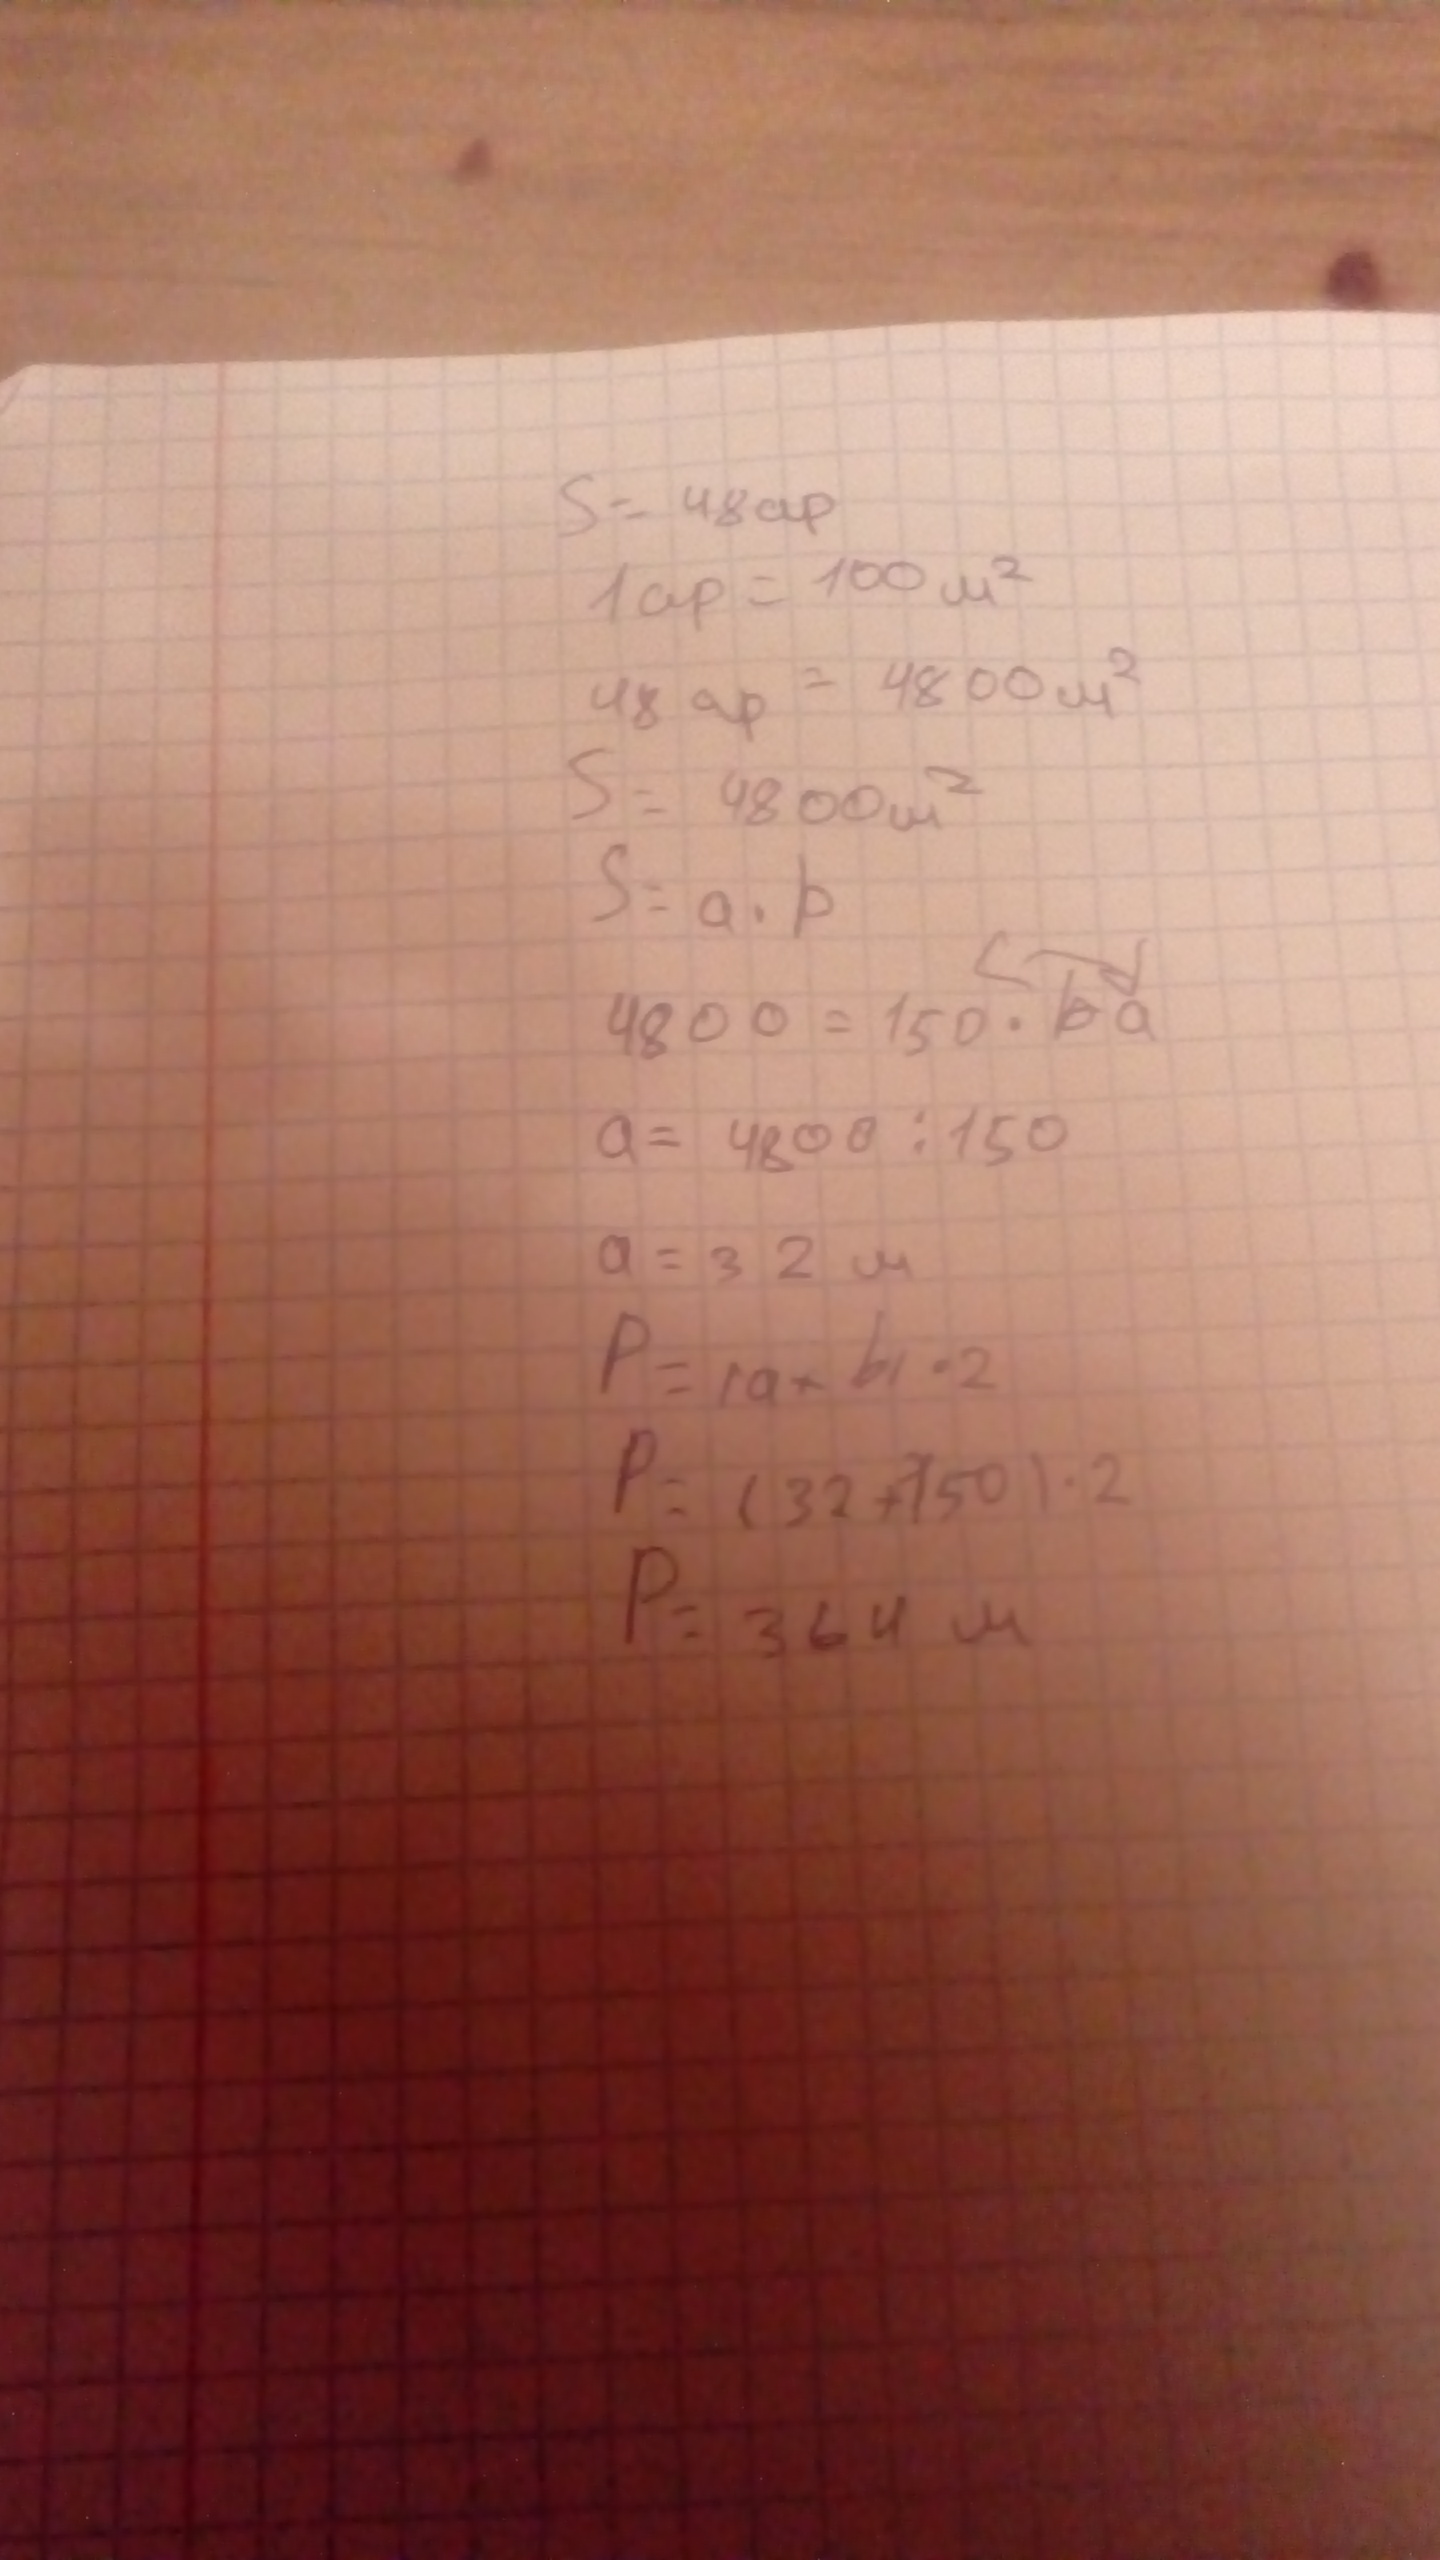 S = 48 ар
1 ар = 100 м²
48 ар = 4800 м²
S = 4800 м²
S = a · b
4800 = 150 · b a
a = 4800 : 150
a = 32 м
P = (a + b) · 2
P = (32 + 150) · 2
P = 364 м